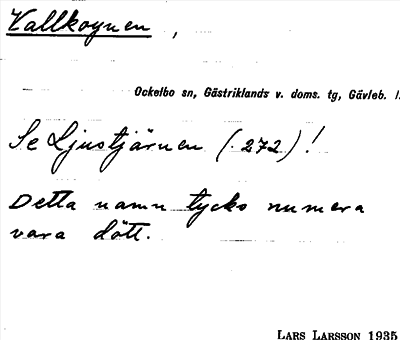 Vallkoynen,
Ockelbo sn, Gästriklands v. doms. tg, Gävleb. l.
Se Ljustjärnen (272)!
Detta namn tycks numera
vara dött.
LARS LARSSON 1935